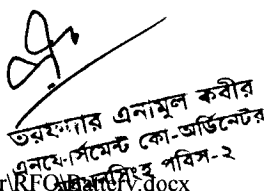 তরফদার এনামুল কবীর
এনফোর্সমেন্ট কো-অর্ডিনেটর
পবিস-২
r\RFQ\Battery.docx